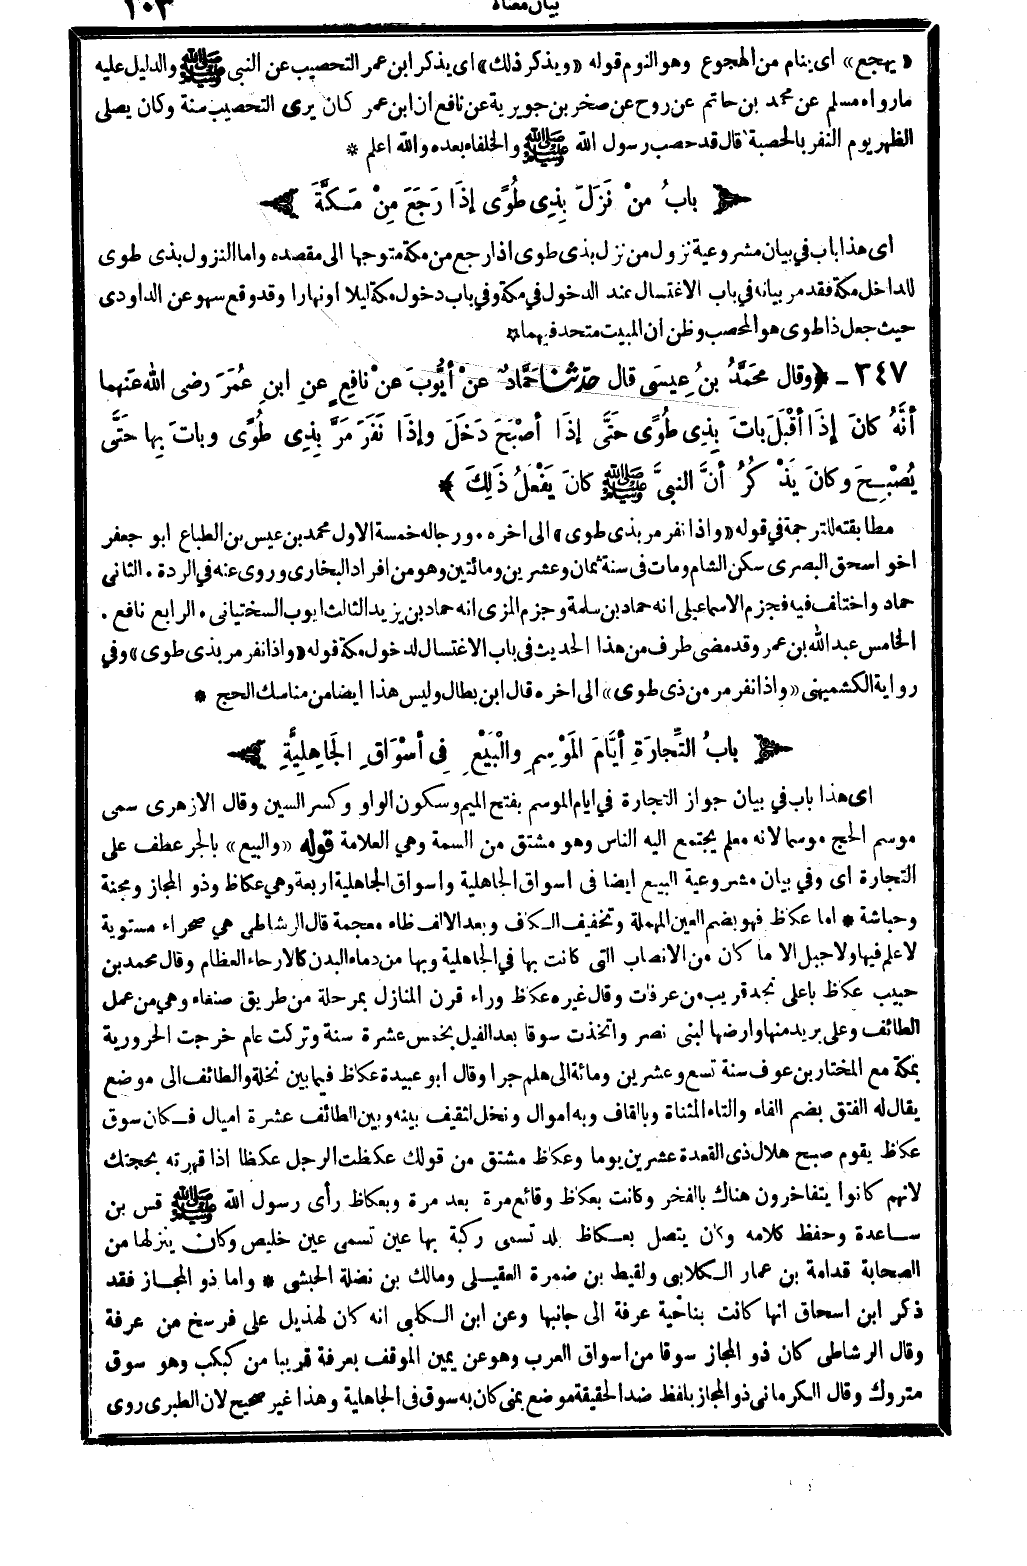 بيان معناه
١٠٣
«يهجع» اى ينام من الهجوع وهو النوم قوله «ويذكر ذلك» اى يذكر ابن عمر التحصيب عن النبى ﷺ والدليل عليه
مارواه مسلم عن محمد بن حاتم عن روح عن صخر بن جويرية عن نافع ان ابن عمر كان يرى التحصيب سنة وكان يصلى
الظهر يوم النفر بالحصبة قال قد حصب رسول الله ﷺ والخلفاء بعده والله اعلم *
﴿ بابُ منْ نَزَلَ بِذِى طُوًى إذَا رَجَعَ مِنْ مَكَّةَ ﴾
اى هذا باب في بيان مشروعية نزول من نزل بذى طوى اذا رجع من مكة متوجها الى مقصده واما النزول بذى طوى
للداخل مكة فقد مر بيانه في باب الاغتسال عند الدخول في مكة وفي باب دخول مكة ليلا او نهارا وقد وقع سهو عن الداودى
حيث جعل ذا طوى هو المحصب وظن ان المبيت متحد فيهما *
٣٤٧ ـ ﴿وقال محَمَّدُ بنُ عِيسَى قال حدّثنا حَمَّادٌ عنْ أيُّوبَ عنْ نافِعٍ عنِ ابنِ عُمَرَ رضى الله عنهما
أنَّهُ كانَ إذَا أقْبَلَ باتَ بِذِى طُوًى حَتَّى إذَا أصْبَحَ دَخَلَ وإذَا نَفَرَ مَرَّ بِذِى طُوًى وباتَ بِها حتَّى
يُصْبِحَ وكانَ يَذْكُرُ أنَّ النبىَّ ﷺ كانَ يَفْعَلُ ذَلِكَ ﴾ *
مطابقته للترجمة في قوله «واذا نفر مر بذى طوى» الى اخره . ورجاله خمسة الاول محمد بن عيسى بن الطباع ابو جعفر
اخو اسحق البصرى سكن الشام ومات فى سنة ثمان وعشرين ومائتين وهو من افراد البخارى وروى عنه في الردة . الثانى
حماد واختلف فيه فجزم الاسماعيلى انه حماد بن سلمة وجزم المزى انه حماد بن يزيد الثالث ايوب السختيانى . الرابع نافع .
الخامس عبد الله بن عمر وقد مضى طرف من هذا الحديث فى باب الاغتسال لدخول مكة قوله «واذا نفر مر بذى طوى» وفي
رواية الكشميهنى «واذا نفر مر من ذى طوى» الى اخره قال ابن بطال وليس هذا ايضا من مناسك الحج *
﴿ بابُ التِّجارَةِ أيَّامَ المَوْسِمِ والْبَيْعِ فِى أسْوَاقِ الجَاهِلِيَّةِ ﴾
اى هذا باب في بيان جواز التجارة في ايام الموسم بفتح الميم وسكون الواو وكسر السين وقال الازهرى سمى
موسم الحج موسما لانه معلم يجتمع اليه الناس وهو مشتق من السمة وهي العلامة قوله «والبيع» بالجر عطف على
التجارة اى وفي بيان مشروعية البيع ايضا فى اسواق الجاهلية واسواق الجاهلية اربعة وهي عكاظ وذو المجاز ومجنة
وحباشة * اما عكاظ فهو بضم العين المهملة وتخفيف الكاف وبعد الالف ظاء معجمة قال الرشاطى هي صحراء مستوية
لا علم فيها ولا جبل الا ما كان من الانصاب التى كانت بها في الجاهلية وبها من دماء البدن كالارحاء العظام وقال محمد بن
حبيب عكاظ باعلى نجد قريب من عرفات وقال غيره عكاظ وراء قرن المنازل بمرحلة من طريق صنعاء وهي من عمل
الطائف وعلى بريد منها وارضها لبنى نصر واتخذت سوقا بعد الفيل بخمس عشرة سنة وتركت عام خرجت الحرورية
بمكة مع المختار بن عوف سنة تسع وعشرين ومائة الى هلم جرا وقال ابو عبيدة عكاظ فيما بين نخلة والطائف الى موضع
يقال له الفتق بضم الفاء والتاء المثناة وبالقاف وبه اموال ونخل لثقيف بينه وبين الطائف عشرة اميال فكان سوق
عكاظ يقوم صبح هلال ذى القعدة عشرين يوما وعكاظ مشتق من قولك عكظت الرجل عكظا اذا قهرته بحجتك
لانهم كانوا يتفاخرون هناك بالفخر وكانت بعكاظ وقائع مرة بعد مرة وبعكاظ رأى رسول الله ﷺ قس بن
ساعدة وحفظ كلامه وكان يتصل بعكاظ بلد تسمى ركبة بها عين تسمى عين خليص وكان ينزلها من
الصحابة قدامة بن عمار الكلابى ولقيط بن ضمرة العقيلى ومالك بن نضلة الحبشى * واما ذو المجاز فقد
ذكر ابن اسحاق انها كانت بناحية عرفة الى جانبها وعن ابن الكلبى انه كان لهذيل على فرسخ من عرفة
وقال الرشاطى كان ذو المجاز سوقا من اسواق العرب وهو عن يمين الموقف بعرفة قريبا من كبكب وهو سوق
متروك وقال الكرمانى ذو المجاز بلفظ ضد الحقيقة موضع بمنى كان به سوق فى الجاهلية وهذا غير صحيح لان الطبرى روى